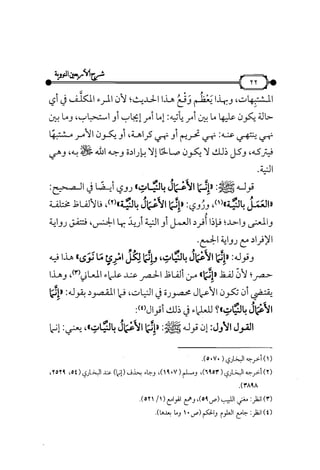 شرح الأربعين النووية
٢٢
المشتبهات، وبهذا يَعْظُم وَقْعُ هذا الحديث؛ لأن المرء المكلَّف في أي
حالة يكون عليها ما بين أمر يأتيه: إما أمر إيجاب أو استحباب، وما بين
نهي ينتهي عنه: نهي تحريم أو نهي كراهة، أو يكون الأمر مشتبهًا
فيتركه، وكل ذلك لا يكون صالحًا إلا بإرادة وجه الله ﷻ به، وهي
النية.
قوله ﷺ: «إِنَّمَا الأَعْمَالُ بِالنِّيَّاتِ» روي أيضًا في الصحيح:
«العَمَلُ بِالنِّيَّةِ»(١)، ورُوي: «إِنَّمَا الأَعْمَالُ بِالنِّيَّةِ»(٢)، فالألفاظ مختلفة
والمعنى واحد؛ فإذا أُفرد العمل أو النية أريدَ بها الجنس، فتتفق رواية
الإفراد مع رواية الجمع.
وقوله: «إِنَّمَا الأَعْمَالُ بِالنِّيَّاتِ، وَإِنَّمَا لِكُلِّ امْرِئٍ مَا نَوَى» هذا فيه
حصر؛ لأنَّ لفظ «إِنَّمَا» من ألفاظ الحصر عند علماء المعاني(٣)، وهذا
يقتضي أن تكون الأعمال محصورة في النيات، فما المقصود بقوله: «إِنَّمَا
الأَعْمَالُ بِالنِّيَّاتِ»؟ للعلماء في ذلك أقوال(٤):
القول الأول: إن قوله ﷺ: «إِنَّمَا الأَعْمَالُ بِالنِّيَّاتِ»، يعني: إنما
(١) أخرجه البخاري (٥٠٧٠).
(٢) أخرجه البخاري (٦٩٥٣)، ومسلم (١٩٠٧)، وجاء بحذف (إنما) عند البخاري (٥٤، ٢٥٢٩،
٣٨٩٨).
(٣) انظر: مغني اللبيب (ص٥٩)، وهمع الهوامع (١/ ٥٢١).
(٤) انظر: جامع العلوم والحكم (ص١٠ وما بعدها).